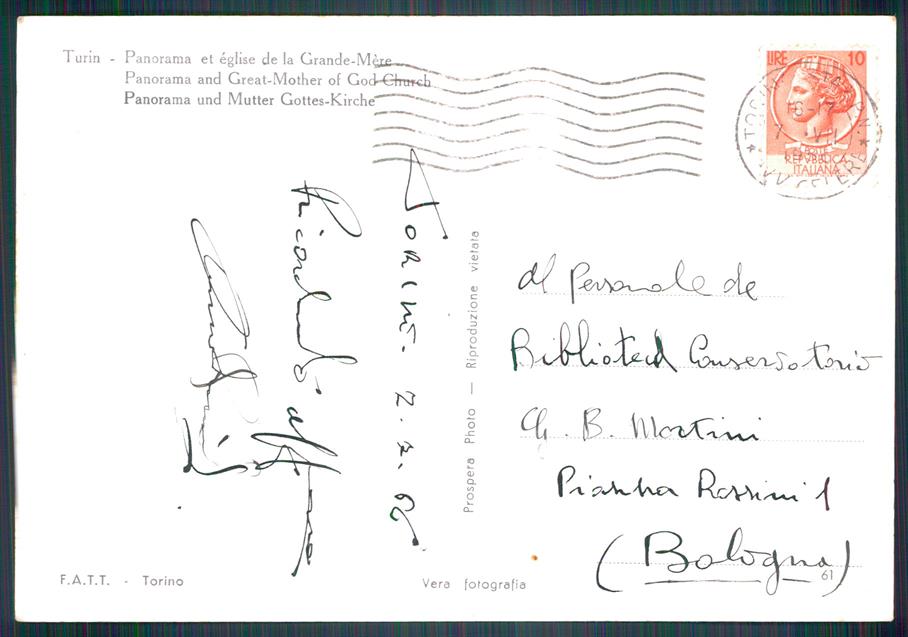 Turin - Panorama et église de la Grande-Mère
Panorama and Great-Mother of God Church
Panorama und Mutter Gottes-Kirche
LIRE 10
16-17
7 VII
REPVBBLICA
ITALIANA
Torino. 7.7.66
Ricordando
Prospera Photo — Riproduzione vietata
Al Personale de
Biblioteca Conservatorio
G. B. Martini
Piazza Rossini 1
(Bologna)
61
F.A.T.T. - Torino
Vera fotografia